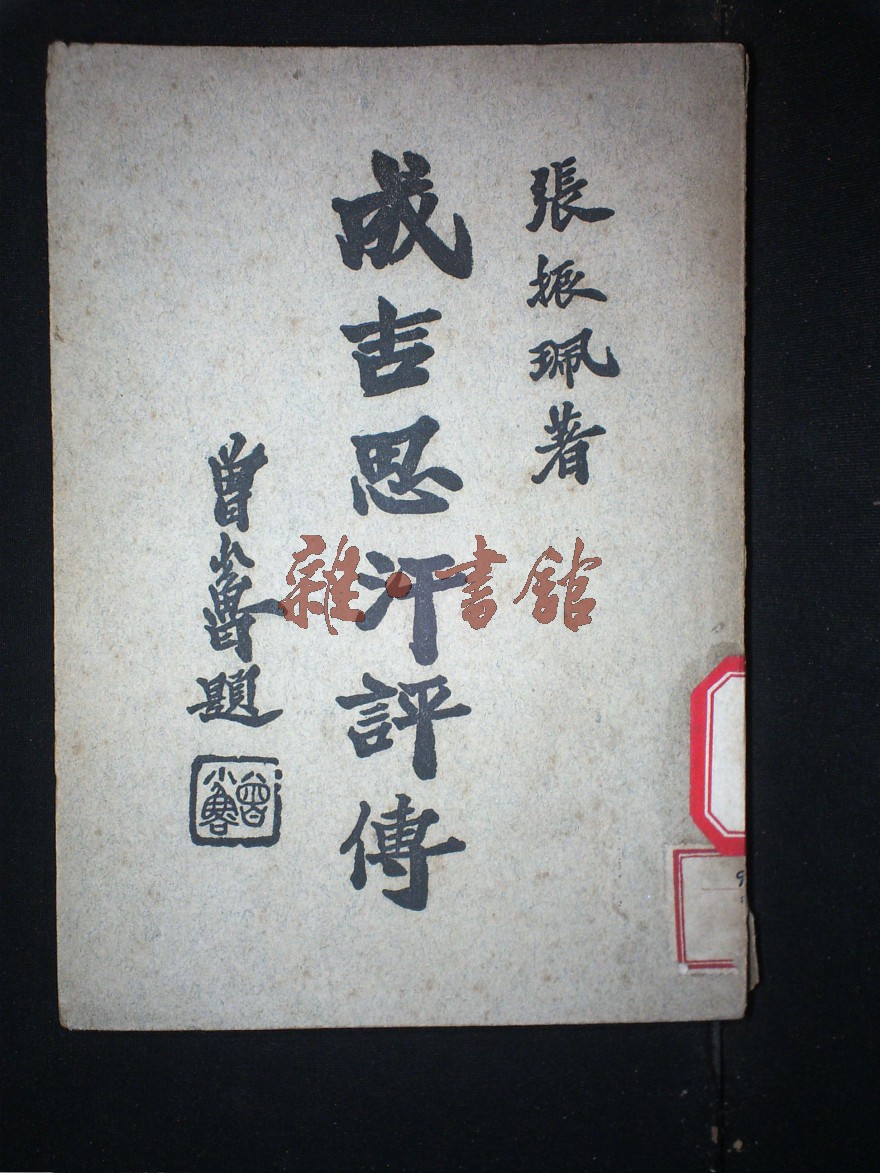 張振珮著
成吉思汗評傳
曾小魯題
曾小魯
雜·書館